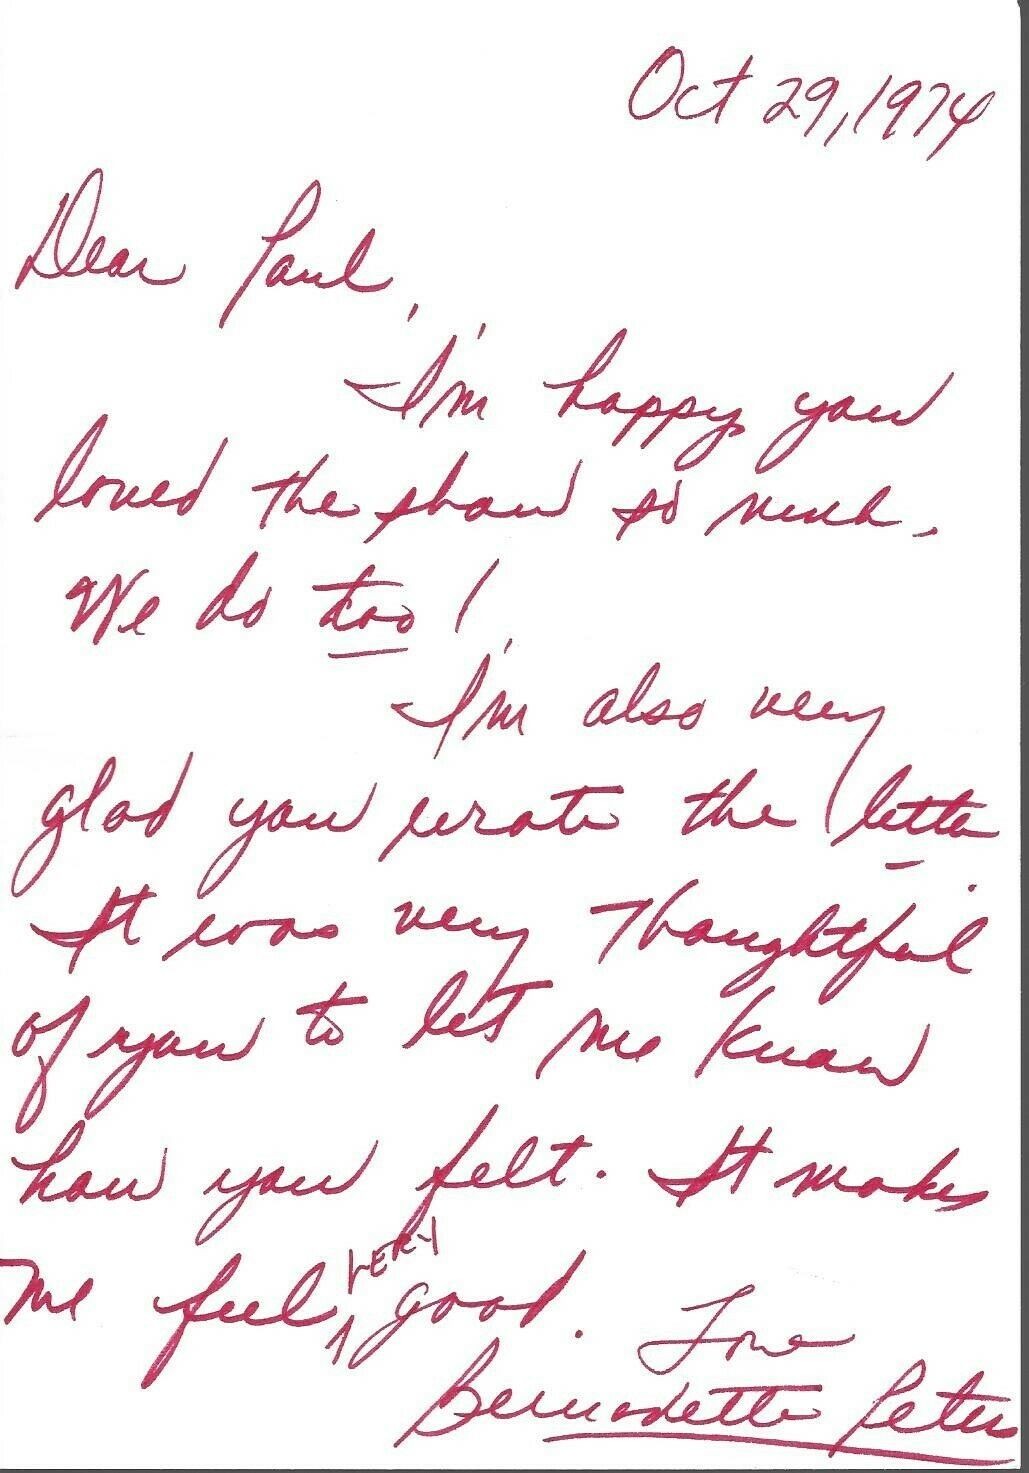 Oct 29, 1974
Dear Paul,
I'm happy you
loved the show so much.
We do too!
I'm also very
glad you wrote the letter.
It was very thoughtful
of you to let me know
how you felt. It makes
me feel ^VERY good.
Love
Bernadette Peters